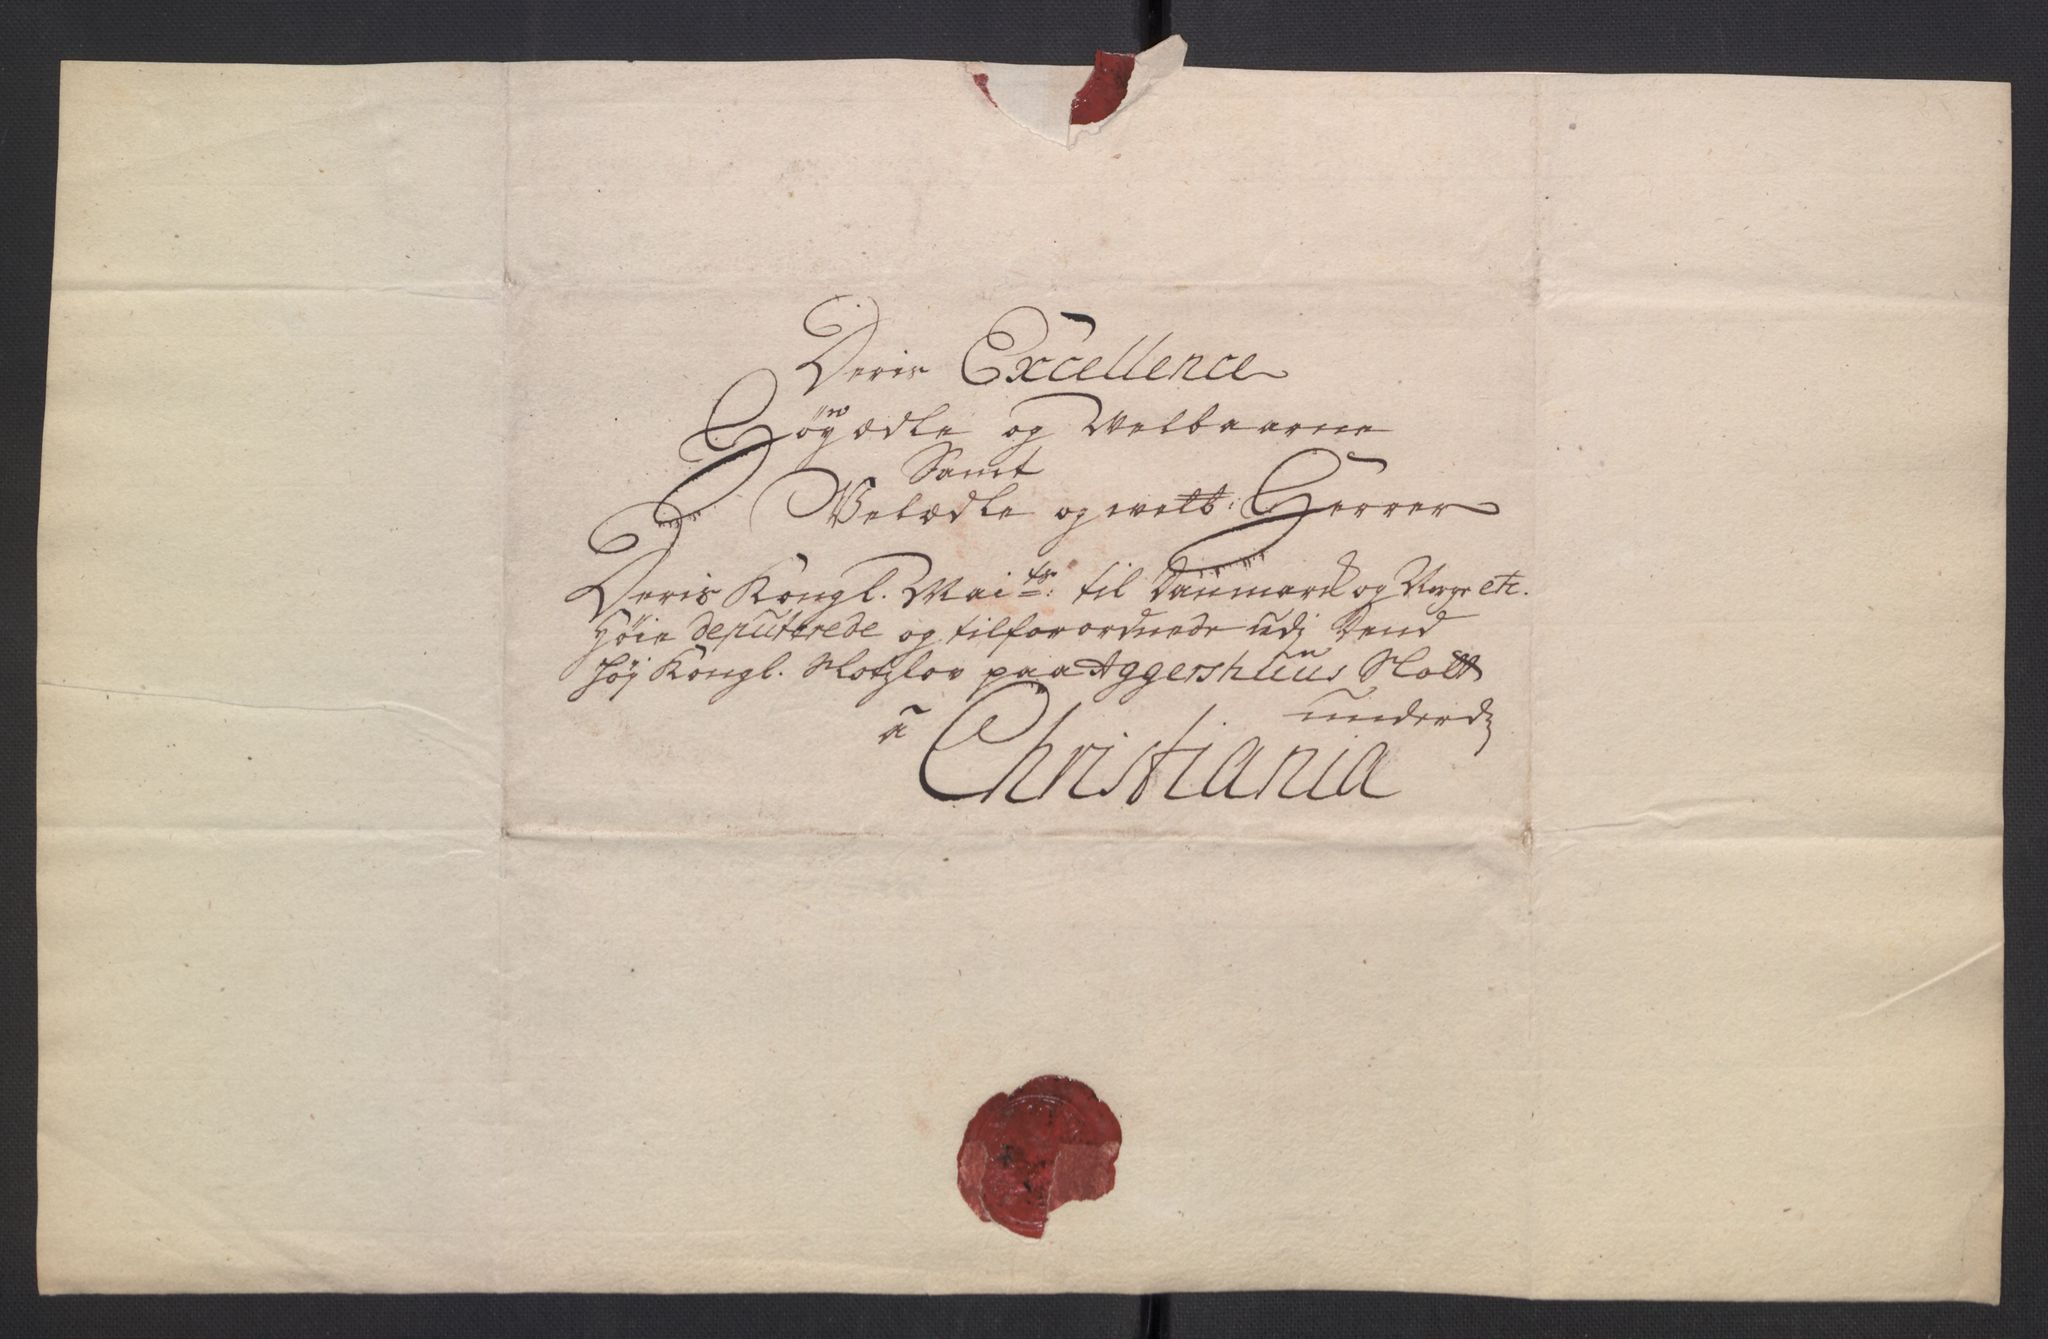 Deris Excellence
Høyædle og Velbaarne
Samt
Velædle og welb: Herrer
Deris Kongl. Mai^ts: til Danmarck og Norge etc.
Høie deputerede og tilforordnede udj Dend
høj Kongl. Slotzlov paa Aggershuus Slott
underd
a Christiania